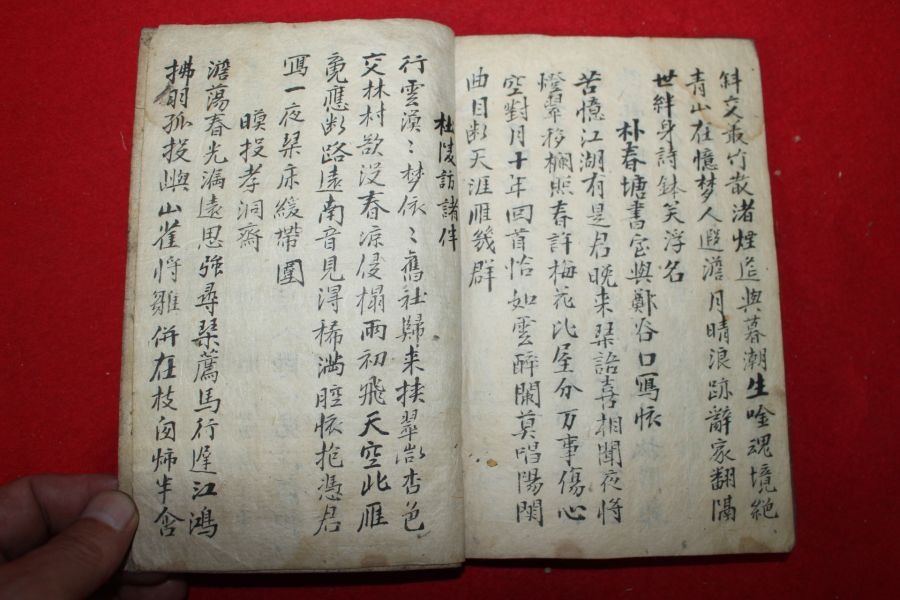 斜交叢竹散渚煙遙與暮潮生吟魂境絶
青山在憶梦人遐澹月晴浪跡辭家翻隔
世絆身詩鉢笑浮名
朴春塘書室與鄭谷口寫懷
苦憶江湖有是君晚来琹語喜相聞夜将
燈翠移欄照春許梅花比屋分万事傷心
空對月十年回首恰如雲醉闌莫唱陽関
曲目断天涯雁幾群
杜陵訪諸伴
行雲漠〻梦依〻舊社歸来挟翠微杏色
交林村欲没春凉侵榻雨初飛天空此雁
竟應断路遠南音見淂稀満腔懷抱憑君
寫一夜琹床緩帶圍
暝投孝洞齋
澹蕩春光漏遠思強尋琹薦馬行遲江鴻
拂羽孤投嶼山雀将雛併在枝 半含